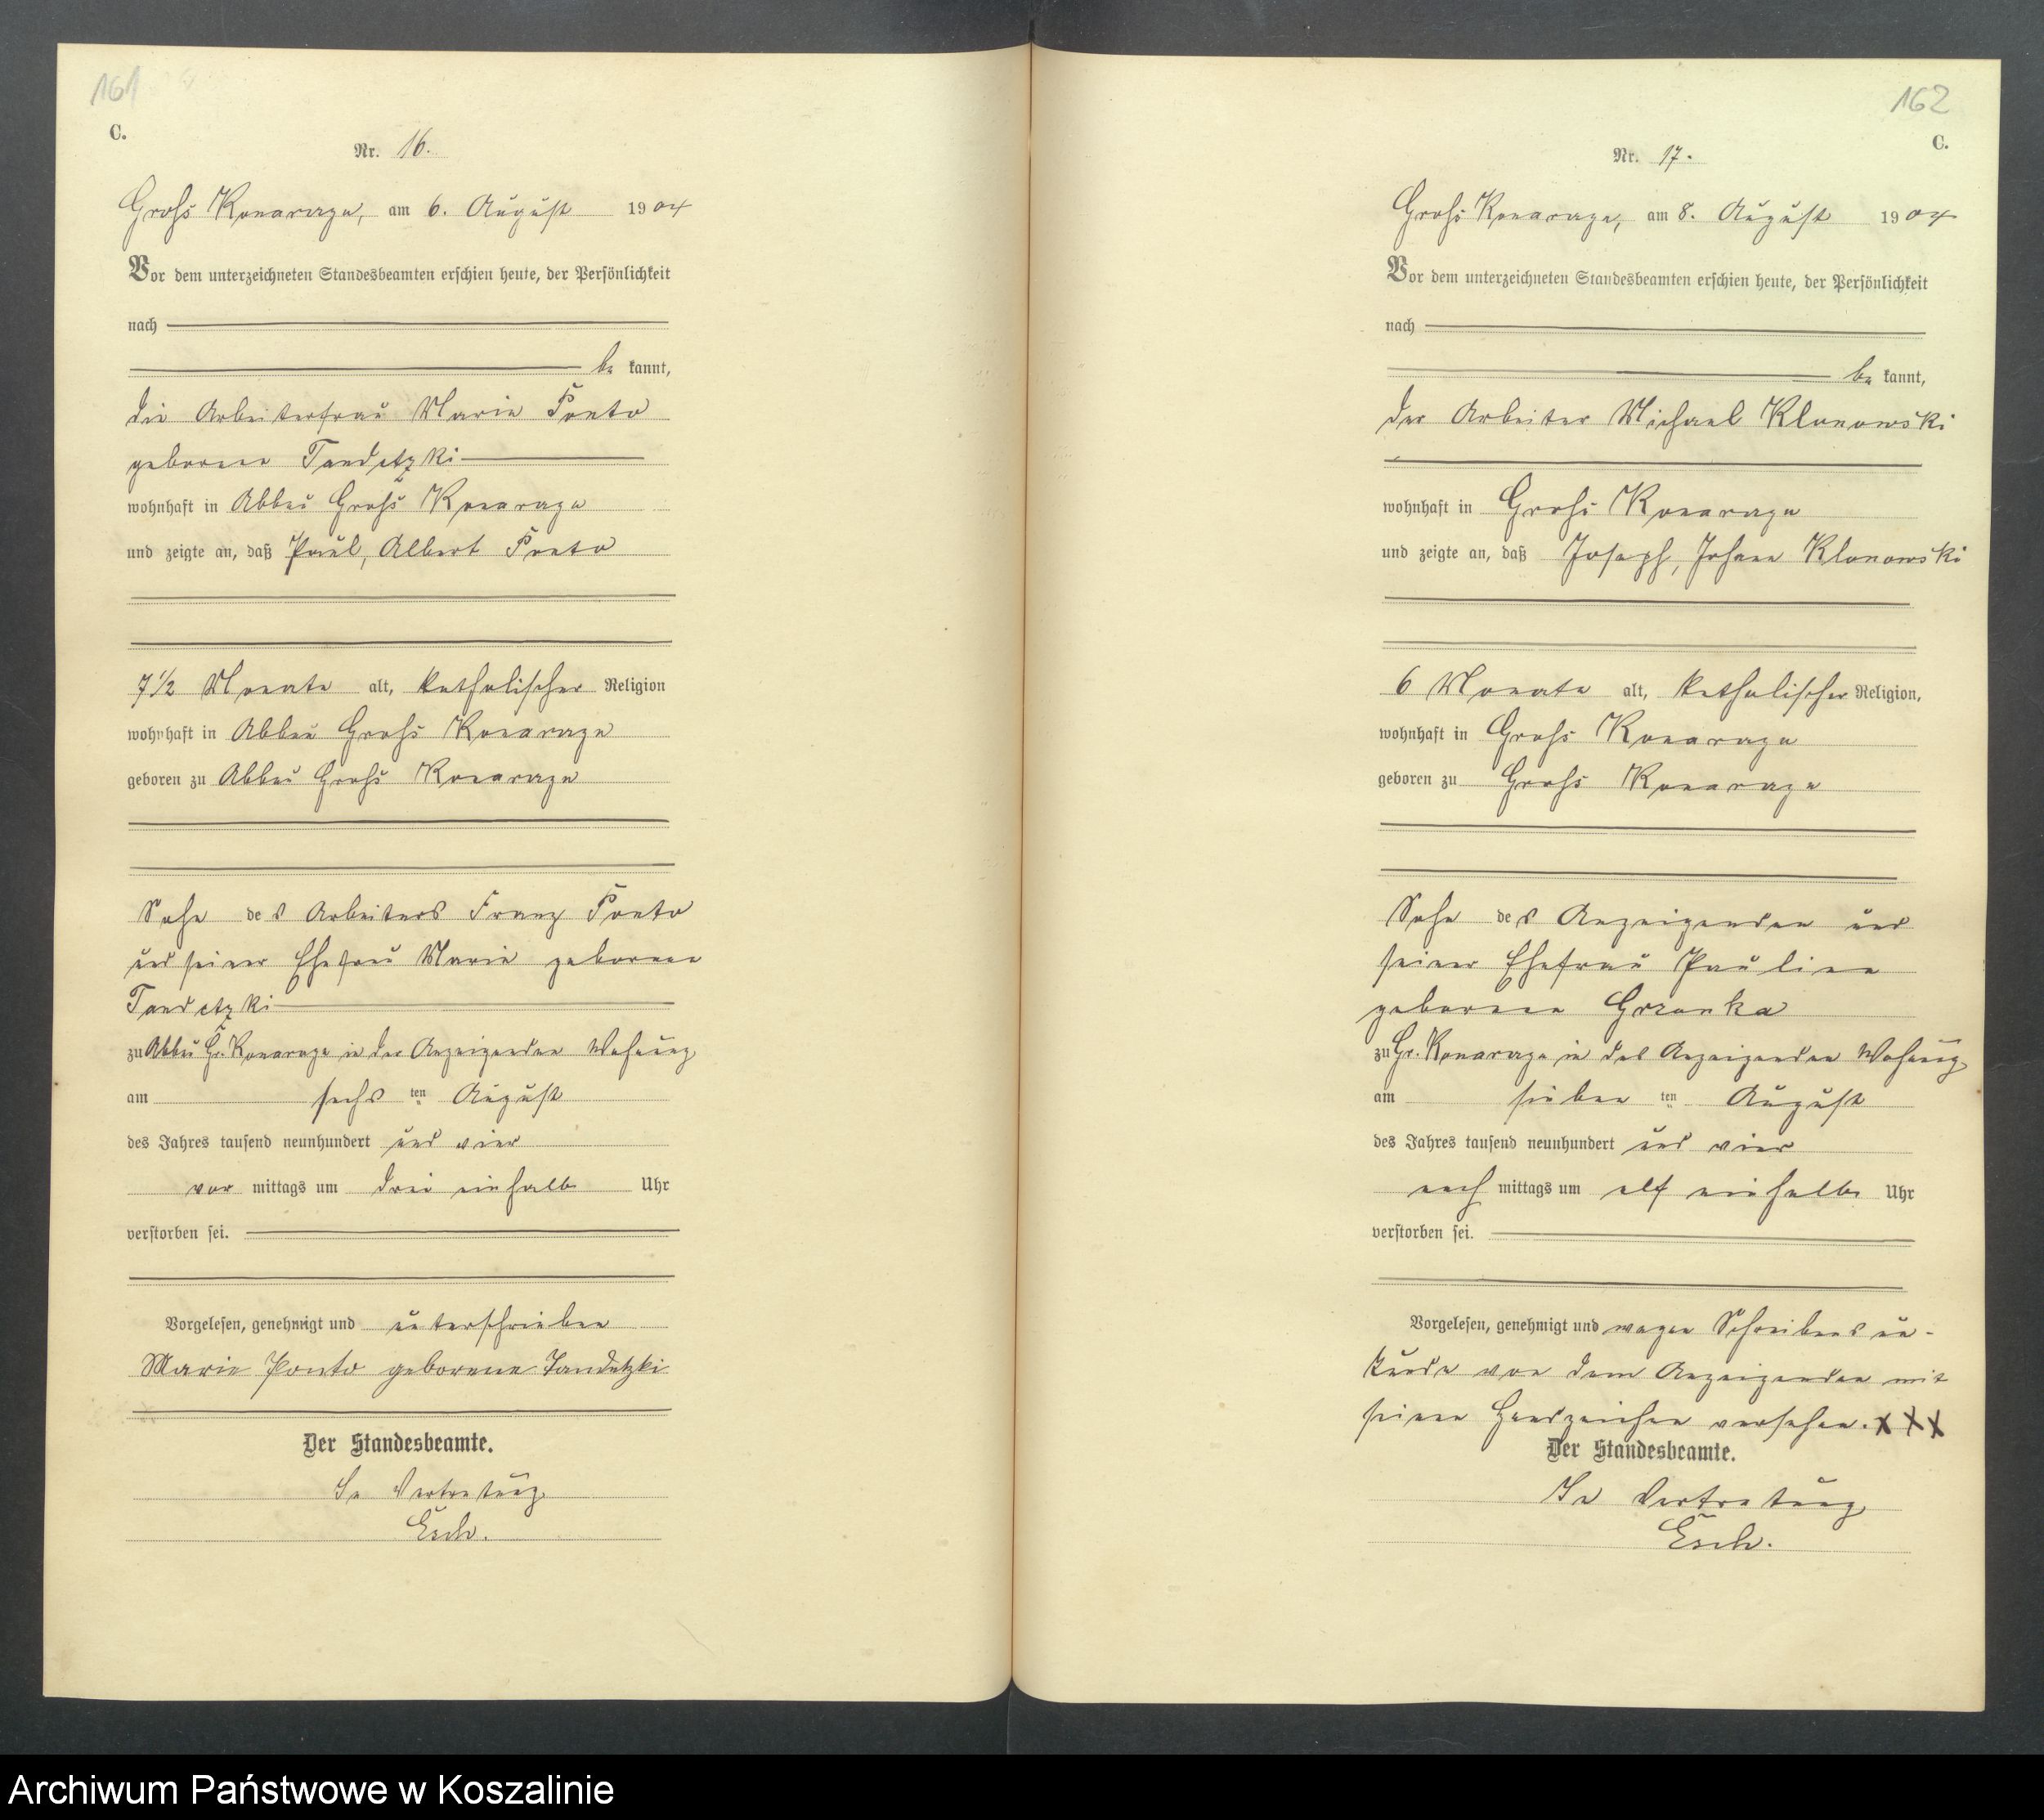 161
C.
Nr. 16.
Groß Konarzyn, am 6. August 1904
Vor dem unterzeichneten Standesbeamten erschien heute, der Persönlichkeit
nach
be kannt,
die Arbeiterfrau Marie Ponto
geborene Tandetzki
wohnhaft in Abbau Groß Konarzyn
und zeigte an, daß Paul, Albert Ponto
7 1/2 Monate alt, katholischer Religion
wohnhaft in Abbau Groß Konarzyn
geboren zu Abbau Groß Konarzyn
Sohn des Arbeiters Franz Ponto
und seiner Ehefrau Marie geborene
Tandetzki
zu Abbau Gr. Konarzyn in der Anzeigenden Wohnung
am sechs ten August
des Jahres tausend neunhundert und vier
vor mittags um drei einhalb Uhr
verstorben sei.
Vorgelesen, genehmigt und unterschrieben
Marie Ponto geborene Tandetzki
Der Standesbeamte.
In Vertretung
Esch.
162
C.
Nr. 17.
Groß Konarzyn, am 8. August 1904
Vor dem unterzeichneten Standesbeamten erschien heute, der Persönlichkeit
nach
be kannt,
der Arbeiter Michael Klonowski
wohnhaft in Groß Konarzyn
und zeigte an, daß Joseph, Johann Klonowski
6 Monate alt, katholischer Religion,
wohnhaft in Groß Konarzyn
geboren zu Groß Konarzyn
Sohn des Anzeigenden und
seiner Ehefrau Pauline
geborene Grzonka
zu Gr. Konarzyn in des Anzeigenden Wohnung
am sieben ten August
des Jahres tausend neunhundert und vier
nach mittags um elf einhalb Uhr
verstorben sei.
Vorgelesen, genehmigt und wegen Schreibens un-
kunde von dem Anzeigenden mit
seinen Handzeichen versehen. XXX
Der Standesbeamte.
In Vertretung
Esch.
Archiwum Państwowe w Koszalinie